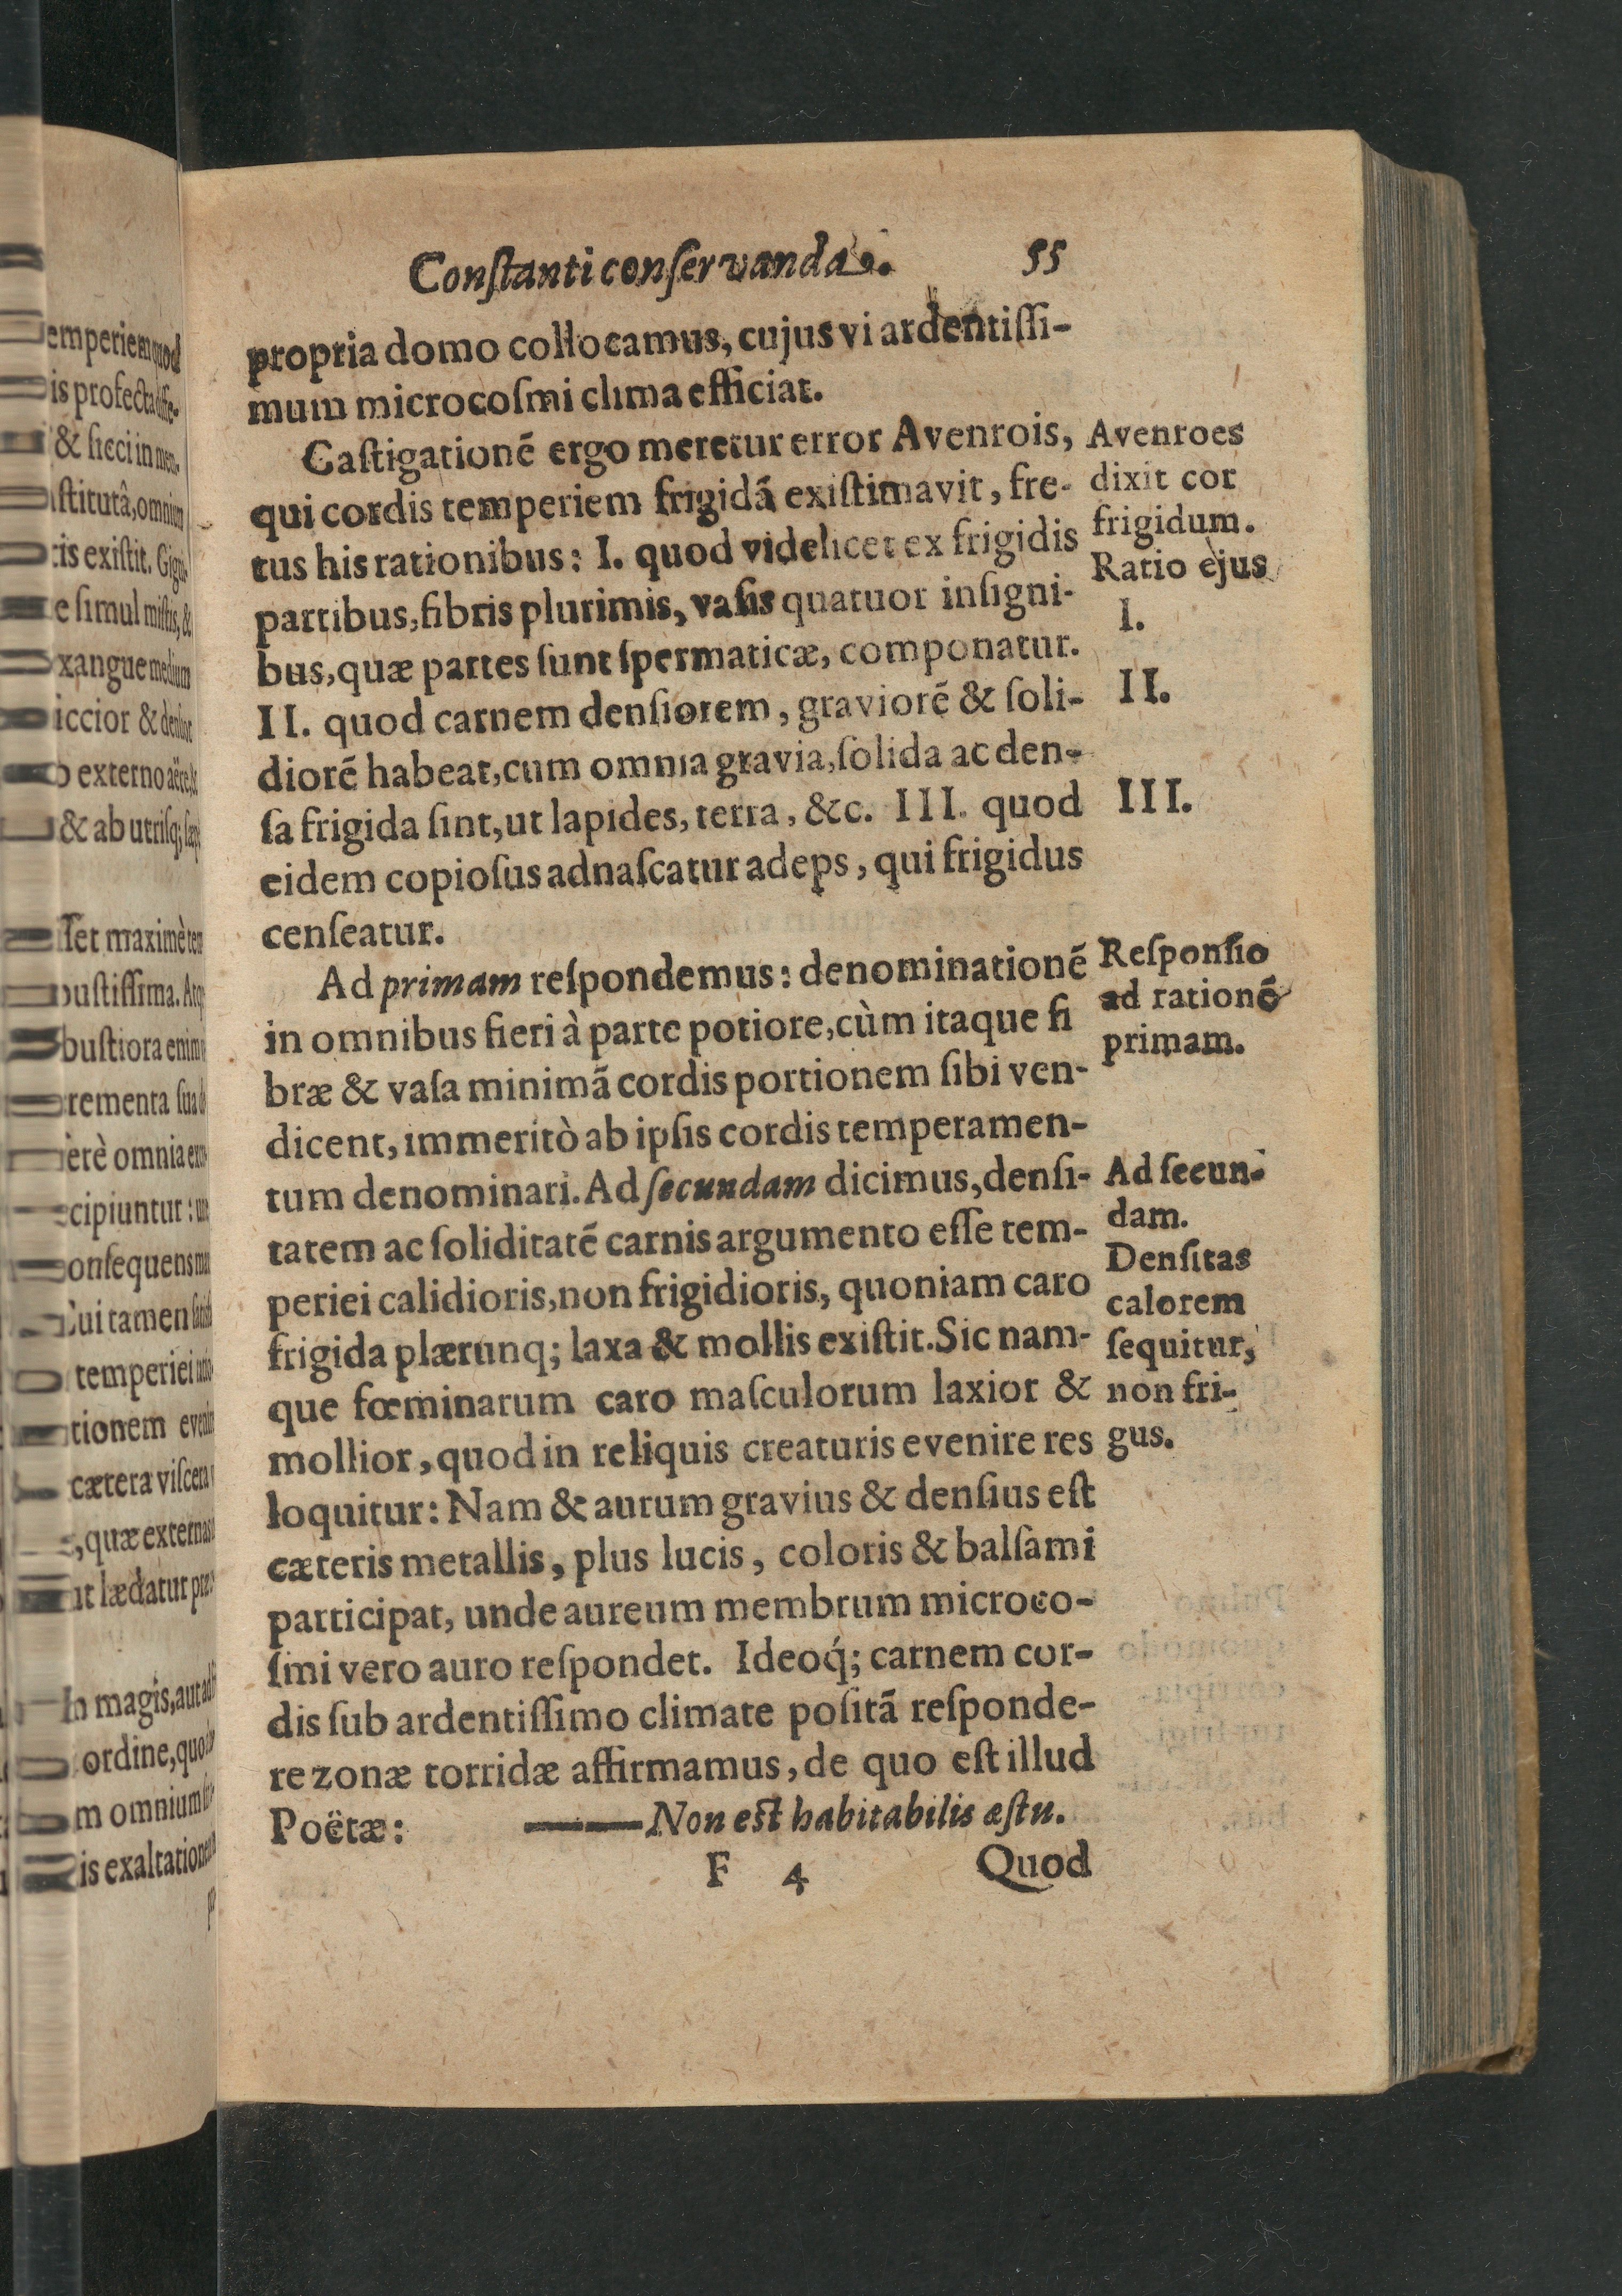 Conſtanti conſervanda. 55
propria domo collocamus, cujus vi ardentiſſi-
mum microcoſmi clima efficiat.
Caſtigationē ergo meretur error Avenrois,
qui cordis temperiem frigidā exiſtimavit, fre-
tus his rationibus: I. quod videlicet ex frigidis
partibus, fibris plurimis, vaſis quatuor inſigni-
bus, quæ partes ſunt ſpermaticæ, componatur.
II. quod carnem denſiorem, graviorē & ſoli-
diorē habeat, cum omnia gravia, ſolida ac den-
ſa frigida ſint, ut lapides, terra, &c. III. quod
eidem copioſus adnaſcatur adeps, qui frigidus
cenſeatur.
Ad primam reſpondemus: denominationē
in omnibus fieri à parte potiore, cùm itaque fi
bræ & vaſa minimā cordis portionem ſibi ven-
dicent, immeritò ab ipſis cordis temperamen-
tum denominari. Ad ſecundam dicimus, denſi-
tatem ac ſoliditatē carnis argumento eſſe tem-
periei calidioris, non frigidioris, quoniam caro
frigida plærunq; laxa & mollis exiſtit. Sic nam-
que fœminarum caro maſculorum laxior &
mollior, quod in reliquis creaturis evenire res
loquitur: Nam & aurum gravius & denſius eſt
cæteris metallis, plus lucis, coloris & balſami
participat, unde aureum membrum microco-
ſmi vero auro reſpondet. Ideoq́; carnem cor-
dis ſub ardentiſſimo climate poſitā reſponde-
re zonæ torridæ affirmamus, de quo eſt illud
Poëtæ: ——— Non eſt habitabilis æſtu.
F 4 Quod
Avenroes
dixit cor
frigidum.
Ratio ejus
I.
II.
III.
Reſponſio
ad rationē
primam.
Ad ſecun-
dam.
Denſitas
calorem
ſequitur,
non fri-
gus.